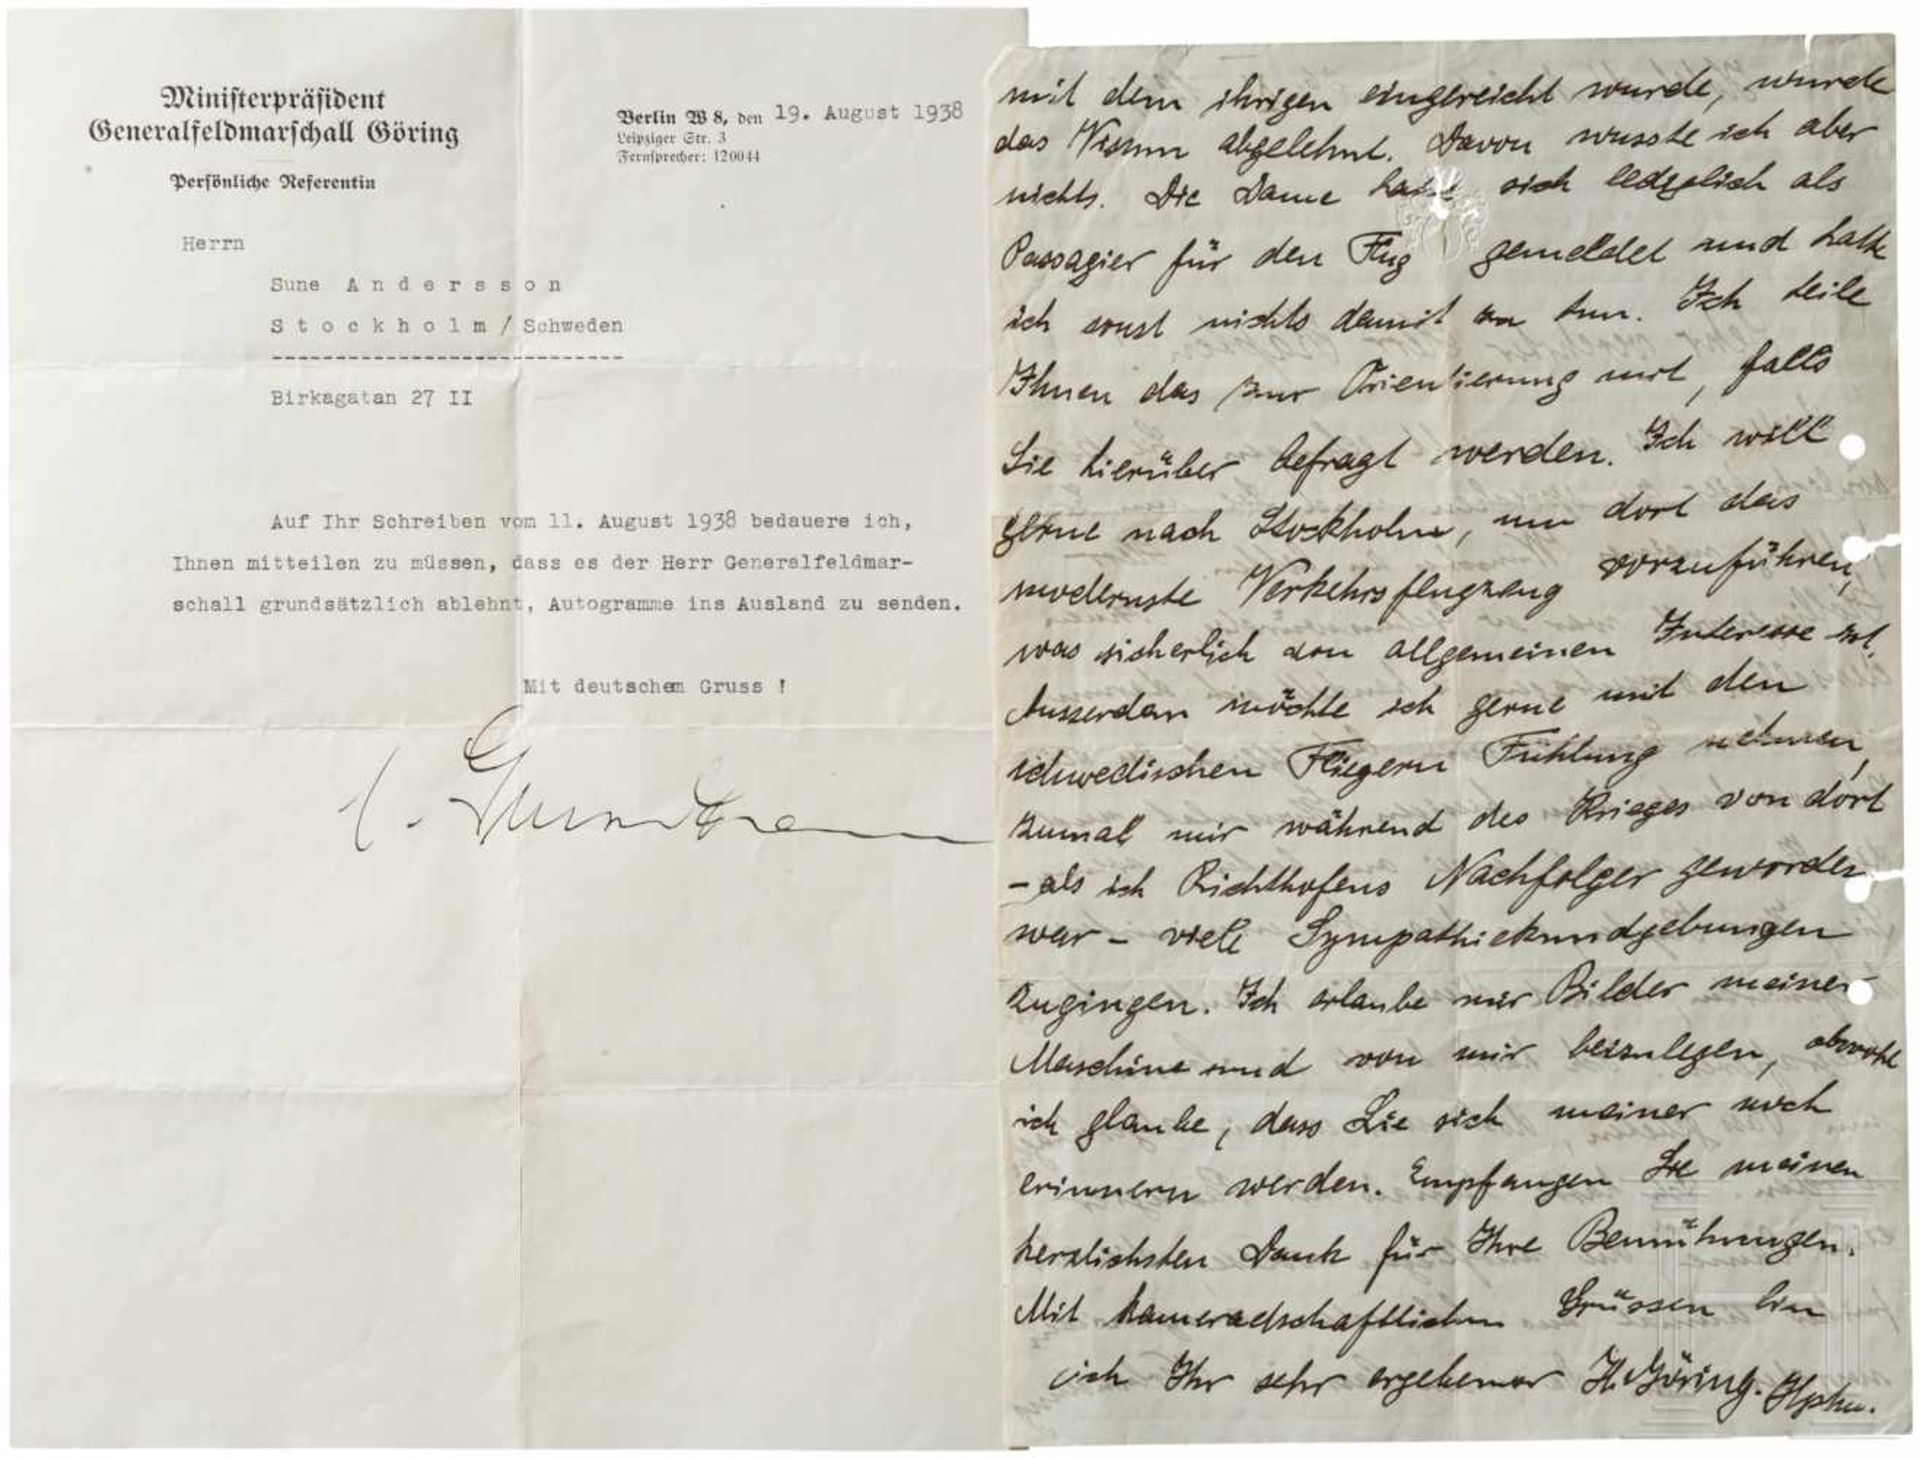 Ministerpräsident
Generalfeldmarschall Göring
Persönliche Referentin
Berlin W 8, den 19. August 1938
Leipziger Str. 3
Fernsprecher: 120044
Herrn
Sune Andersson
Stockholm / Schweden
---------------------------
Birkagatan 27 II
Auf Ihr Schreiben vom 11. August 1938 bedauere ich,
Ihnen mitteilen zu müssen, dass es der Herr Generalfeldmar-
schall grundsätzlich ablehnt, Autogramme ins Ausland zu senden.
Mit deutschem Gruss !
mit dem ihrigen eingereicht wurde, wurde
das Visum abgelehnt. Davon wusste ich aber
nichts. Die Dame hatte sich lediglich als
Passagier für den Flug gemeldet und hatte
ich sonst nichts damit zu tun. Ich teile
Ihnen das zur Orientierung mit, falls
Sie hierüber befragt werden. Ich will
gerne nach Stockholm, um dort das
modernste Verkehrsflugzeug vorzuführen,
was sicherlich von allgemeinen Interesse ist.
Ausserdem möchte ich gerne mit den
schwedischen Fliegern Fühlung nehmen,
zumal mir während des Krieges von dort
- als ich Richthofens Nachfolger geworden
war - viele Sympathiekundgebungen
zugingen. Ich erlaube mir Bilder meiner
Maschine und von mir beizulegen, obwohl
ich glaube, dass Sie sich meiner noch
erinnern werden. Empfangen Sie meinen
herzlichsten Dank für Ihre Bemühungen.
Mit kameradschaftlichen Grüssen bin
ich Ihr sehr ergebener H. Göring. Hptm.